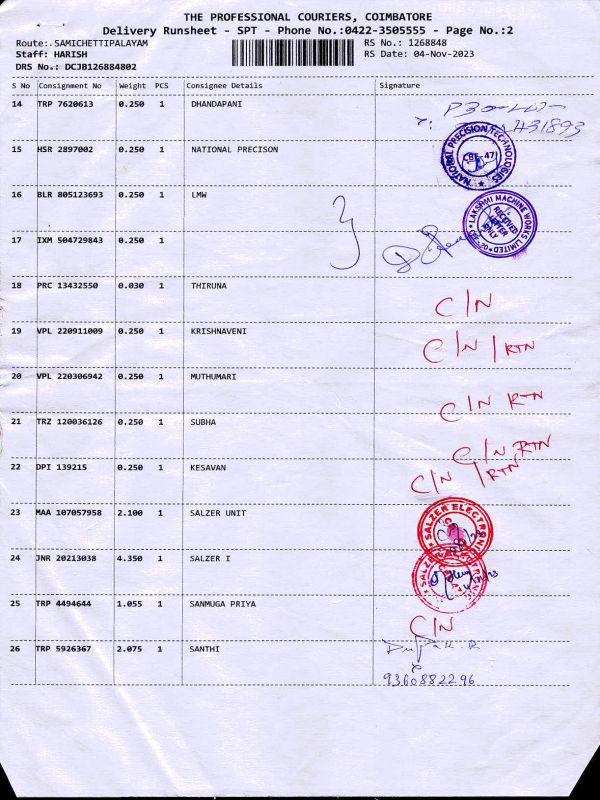 THE PROFESSIONAL COURIERS, COIMBATORE
Delivery Runsheet - SPT - Phone No.:0422-3505555 - Page No.:2
Route: SAMICHETTIPALAYAM RS No.: 1268848
Staff: HARISH RS Date: 04-Nov-2023
DRS No.: DCJB126884802
S No Consignment No Weight PCS Consignee Details Signature
14 TRP 7620613 0.250 1 DHANDAPANI
15 HSR 2897002 0.250 1 NATIONAL PRECISON
NATIONAL PRECISION TECHNOLOGIES
CBE-47
16 BLR 805123693 0.250 1 LMW
LAKSHMI MACHINE WORKS LIMITED
RECEIVED
LETTER
ONLY
17 IXM 504729843 0.250 1
18 PRC 13432550 0.030 1 THIRUNA
C/N
19 VPL 220911009 0.250 1 KRISHNAVENI
C/N/RTN
20 VPL 220306942 0.250 1 MUTHUMARI
C/N RTN
21 TRZ 120036126 0.250 1 SUBHA
C/N RTN
22 DPI 139215 0.250 1 KESAVAN
C/N/RTN
23 MAA 107057958 2.100 1 SALZER UNIT
SALZER ELECTRONI
24 JNR 20213038 4.350 1 SALZER I
25 TRP 4494644 1.055 1 SANMUGA PRIYA
C/N
26 TRP 5926367 2.075 1 SANTHI
9360882296